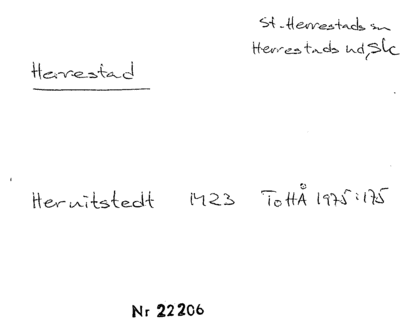 St. Herrestads sn
Herrestads hd, Sk
Herrestad
Hernitstedt 1423 ToHÅ 1975:175
Nr 22206